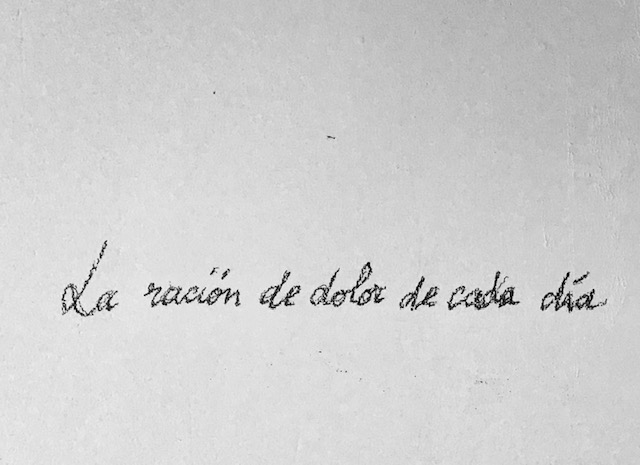 La ración de dolor de cada día